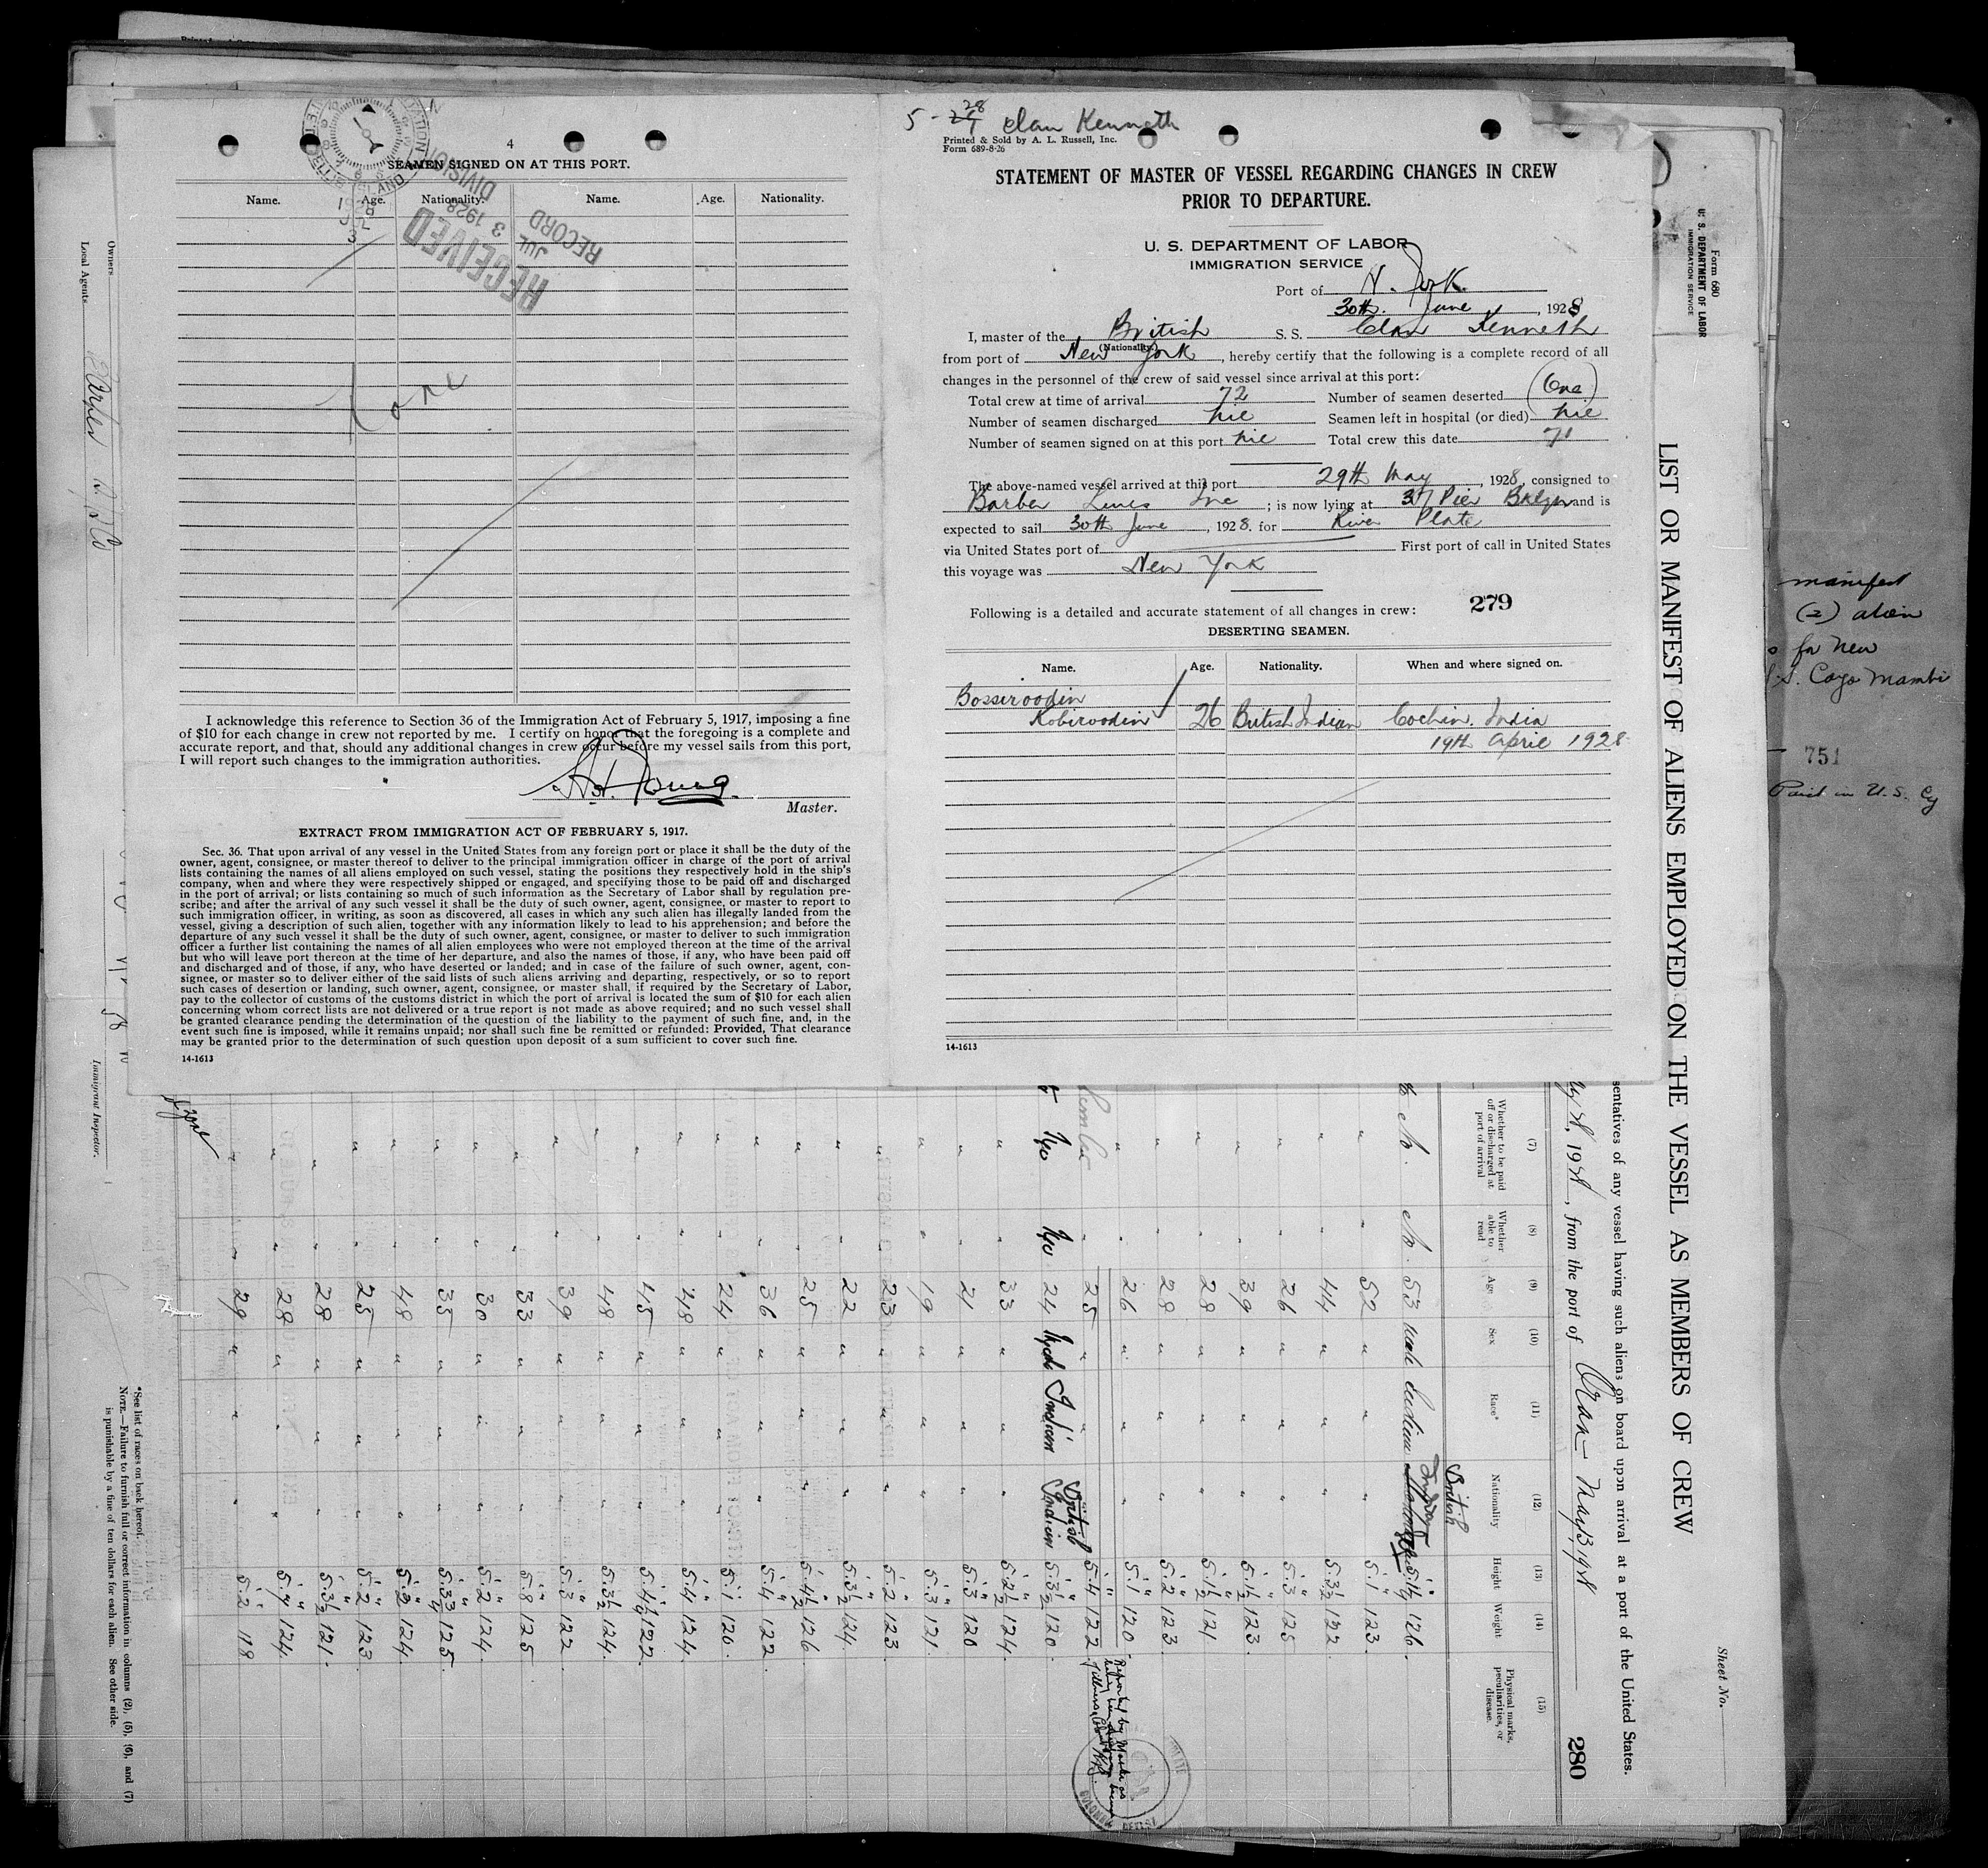 4
SEAMEN SIGNED ON AT THIS PORT.
Name. Age. Nationality. Name. Age. Nationality.
RECEIVED
JUL 3 1928
RECORD
DIVISION
None
I acknowledge this reference to Section 36 of the Immigration Act of February 5, 1917, imposing a fine
of $10 for each change in crew not reported by me. I certify on honor that the foregoing is a complete and
accurate report, and that, should any additional changes in crew occur before my vessel sails from this port,
I will report such changes to the immigration authorities.
Master.
EXTRACT FROM IMMIGRATION ACT OF FEBRUARY 5, 1917.
Sec. 36. That upon arrival of any vessel in the United States from any foreign port or place it shall be the duty of the
owner, agent, consignee, or master thereof to deliver to the principal immigration officer in charge of the port of arrival
lists containing the names of all aliens employed on such vessel, stating the positions they respectively hold in the ship's
company, when and where they were respectively shipped or engaged, and specifying those to be paid off and discharged
in the port of arrival; or lists containing so much of such information as the Secretary of Labor shall by regulation pre-
scribe; and after the arrival of any such vessel it shall be the duty of such owner, agent, consignee, or master to report to
such immigration officer, in writing, as soon as discovered, all cases in which any such alien has illegally landed from the
vessel, giving a description of such alien, together with any information likely to lead to his apprehension; and before the
departure of any such vessel it shall be the duty of such owner, agent, consignee, or master to deliver to such immigration
officer a further list containing the names of all alien employees who were not employed thereon at the time of the arrival
but who will leave port thereon at the time of her departure, and also the names of those, if any, who have been paid off
and discharged and of those, if any, who have deserted or landed; and in case of the failure of such owner, agent, con-
signee, or master so to deliver either of the said lists of such aliens arriving and departing, respectively, or so to report
such cases of desertion or landing, such owner, agent, consignee, or master shall, if required by the Secretary of Labor,
pay to the collector of customs of the customs district in which the port of arrival is located the sum of $10 for each alien
concerning whom correct lists are not delivered or a true report is not made as above required; and no such vessel shall
be granted clearance pending the determination of the question of the liability to the payment of such fine, and, in the
event such fine is imposed, while it remains unpaid; nor shall such fine be remitted or refunded: Provided, That clearance
may be granted prior to the determination of such question upon deposit of a sum sufficient to cover such fine.
14-1613
Clan Kenneth
Printed & Sold by A. L. Russell, Inc.
Form 689-8-26
STATEMENT OF MASTER OF VESSEL REGARDING CHANGES IN CREW
PRIOR TO DEPARTURE.
U. S. DEPARTMENT OF LABOR
IMMIGRATION SERVICE
Port of N. York.
30th. June, 1928
I, master of the British S. S. Clan Kenneth
(Nationality)
from port of New York, hereby certify that the following is a complete record of all
changes in the personnel of the crew of said vessel since arrival at this port:
Total crew at time of arrival 72 Number of seamen deserted (One)
Number of seamen discharged nil Seamen left in hospital (or died) nil
Number of seamen signed on at this port nil Total crew this date 71
The above-named vessel arrived at this port 29th May, 1928, consigned to
Barber Lines Inc; is now lying at 37 Pier Bklyn and is
expected to sail 30th June, 1928. for River Plate
via United States port of First port of call in United States
this voyage was New York
Following is a detailed and accurate statement of all changes in crew: 279
DESERTING SEAMEN.
Name. Age. Nationality. When and where signed on.
Bosseroodin
Kobiroodin 26 British Indian Cochin. India
19th April 1928
14-1613
Form 680
U. S. DEPARTMENT OF LABOR
IMMIGRATION SERVICE
LIST OR MANIFEST OF ALIENS EMPLOYED ON THE VESSEL AS MEMBERS OF CREW
Sheet No.
sentatives of any vessel having such aliens on board upon arrival at a port of the United States.
, from the port of Oran
280
(7) (8) (9) (10) (11) (12) (13) (14) (15)
Whether to be paid off or discharged at port of arrival
Whether able to read
Age
Sex
Race*
Nationality
Height
Weight
Physical marks, peculiarities, or disease
British
No. 53 male Indian 126.
52 " " " 5.1 123.
44 " " " 5.3½ 122
26 " " " 5.3 125
39 " " " 5.4½ 123.
28 " " " 5.1½ 121
28 " " " 5.2 123.
26 " " " 5.1 120.
25 " 5.4 122
No No 24 Male Indian British Indian 5.3½ 120.
33 " " " 5.2½ 124.
21 " " " 5.3 120
19 " " " 5.3 121.
23 " " " 5.2 123.
22 " " " 5.3½ 124.
25 " " " 5.4½ 126.
36 " " " 5.4 122.
24 " " " 5.1 120.
48 " " " 5.4 124.
45 " " " 5.4½ 122.
48 " " " 5.3½ 124.
39 " " " 5.3 122
33 " " " 5.8 125
30 " " " 5.2 124.
35 " " " 5.3¾ 125.
48 " " " 124.
25 " " " 5.2 123.
28 " " " 5.3½ 121.
28 " " " 5.7 124.
29 " " " 5.2 118
*See list of races on back hereof.
NOTE.—Failure to furnish full or correct information in columns (2), (5), (6), and (7)
is punishable by a fine of ten dollars for each alien. See other side.
Owners
Local Agents
Immigrant Inspector.
manifest
(2) alien
for New
S. Cayo Mambi
751
Paid in U. S. Cy